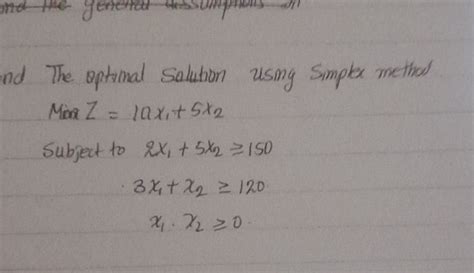 and the general assumptions in
nd The optimal Salution using Simplex method
Min Z = 10x₁ + 5x₂
Subject to 2x₁ + 5x₂ ≥ 150
3x₁ + x₂ ≥ 120
x₁ . x₂ ≥ 0.